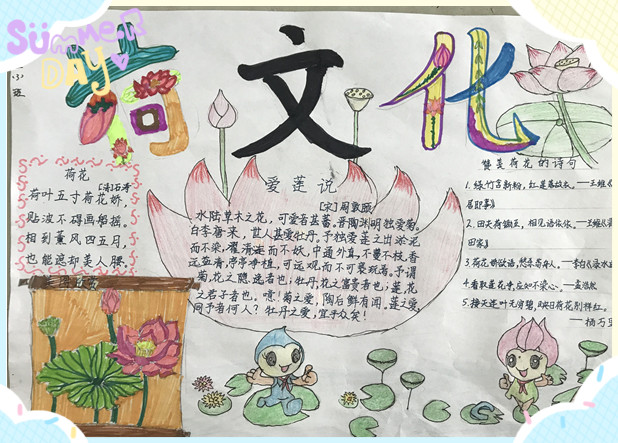 SUMMER
DAY
荷文化
班
荷花
[清]石涛
荷叶五寸荷花娇,
贴波不碍画船摇。
相到薰风四五月,
也能遮却美人腰。
爱莲说
[宋]周敦颐
水陆草木之花,可爱者甚蕃。晋陶渊明独爱菊。
自李唐来,世人甚爱牡丹。予独爱莲之出淤泥
而不染,濯清涟而不妖,中通外直,不蔓不枝,香
远益清,亭亭净植,可远观而不可亵玩焉。予谓
菊,花之隐逸者也;牡丹,花之富贵者也;莲,花
之君子者也。噫!菊之爱,陶后鲜有闻。莲之爱,
同予者何人?牡丹之爱,宜乎众矣!
赞美荷花的诗句
1.绿竹含新粉,红莲落故衣。——王维《
居即事》
2.田夫荷锄至,相见语依依。——王维《
田家》
3.荷花娇欲语,愁杀荡舟人。——李白《渌水
4.看取莲花净,应知不染心。——孟浩然
5.接天莲叶无穷碧,映日荷花别样红。
——杨万里